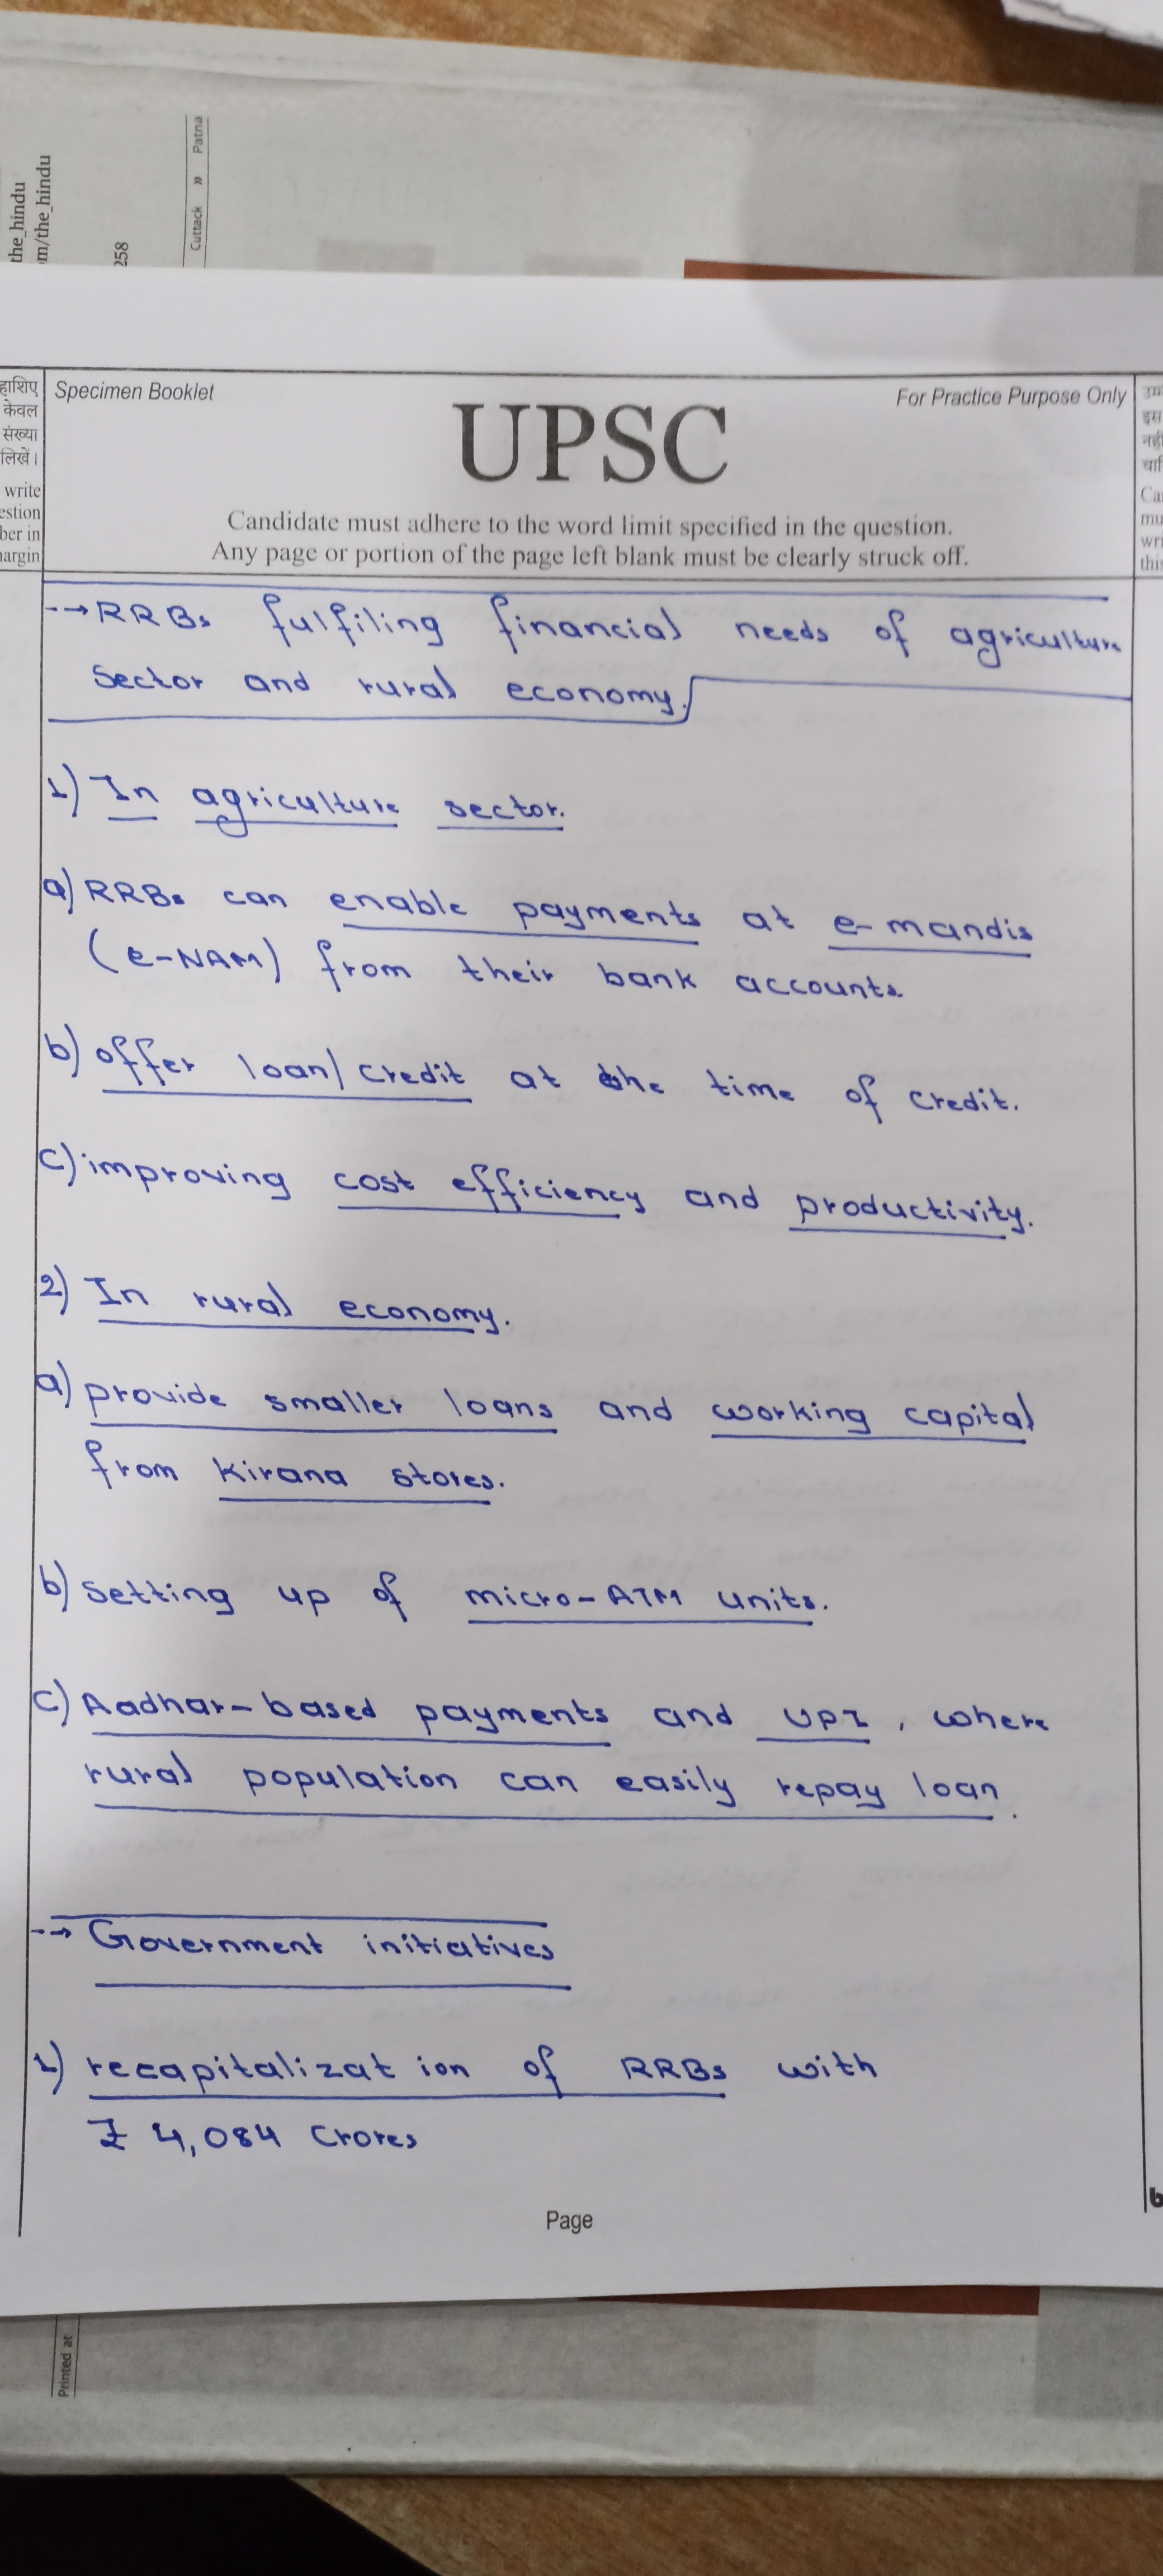 the_hindu
m/the_hindu
258
Cuttack » Patna
हाशिए
केवल
संख्या
लिखें।
write
estion
ber in
argin
Specimen Booklet
For Practice Purpose Only
UPSC
Candidate must adhere to the word limit specified in the question.
Any page or portion of the page left blank must be clearly struck off.
इस
नहीं
Ca
mu
wri
this
--→ RRBs fulfiling financial needs of agriculture
sector and rural economy.
1) In agriculture sector.
a) RRBs can enable payments at e-mandis
(e-NAM) from their bank accounts.
b) offer loan/credit at the time of credit.
c) improving cost efficiency and productivity.
2) In rural economy.
a) provide smaller loans and working capital
from kirana stores.
b) setting up of micro-ATM units.
c) Aadhar-based payments and UPI, where
rural population can easily repay loan.
--→ Government initiatives
1) recapitalization of RRBs with
₹ 4,084 Crores
Page
Printed at